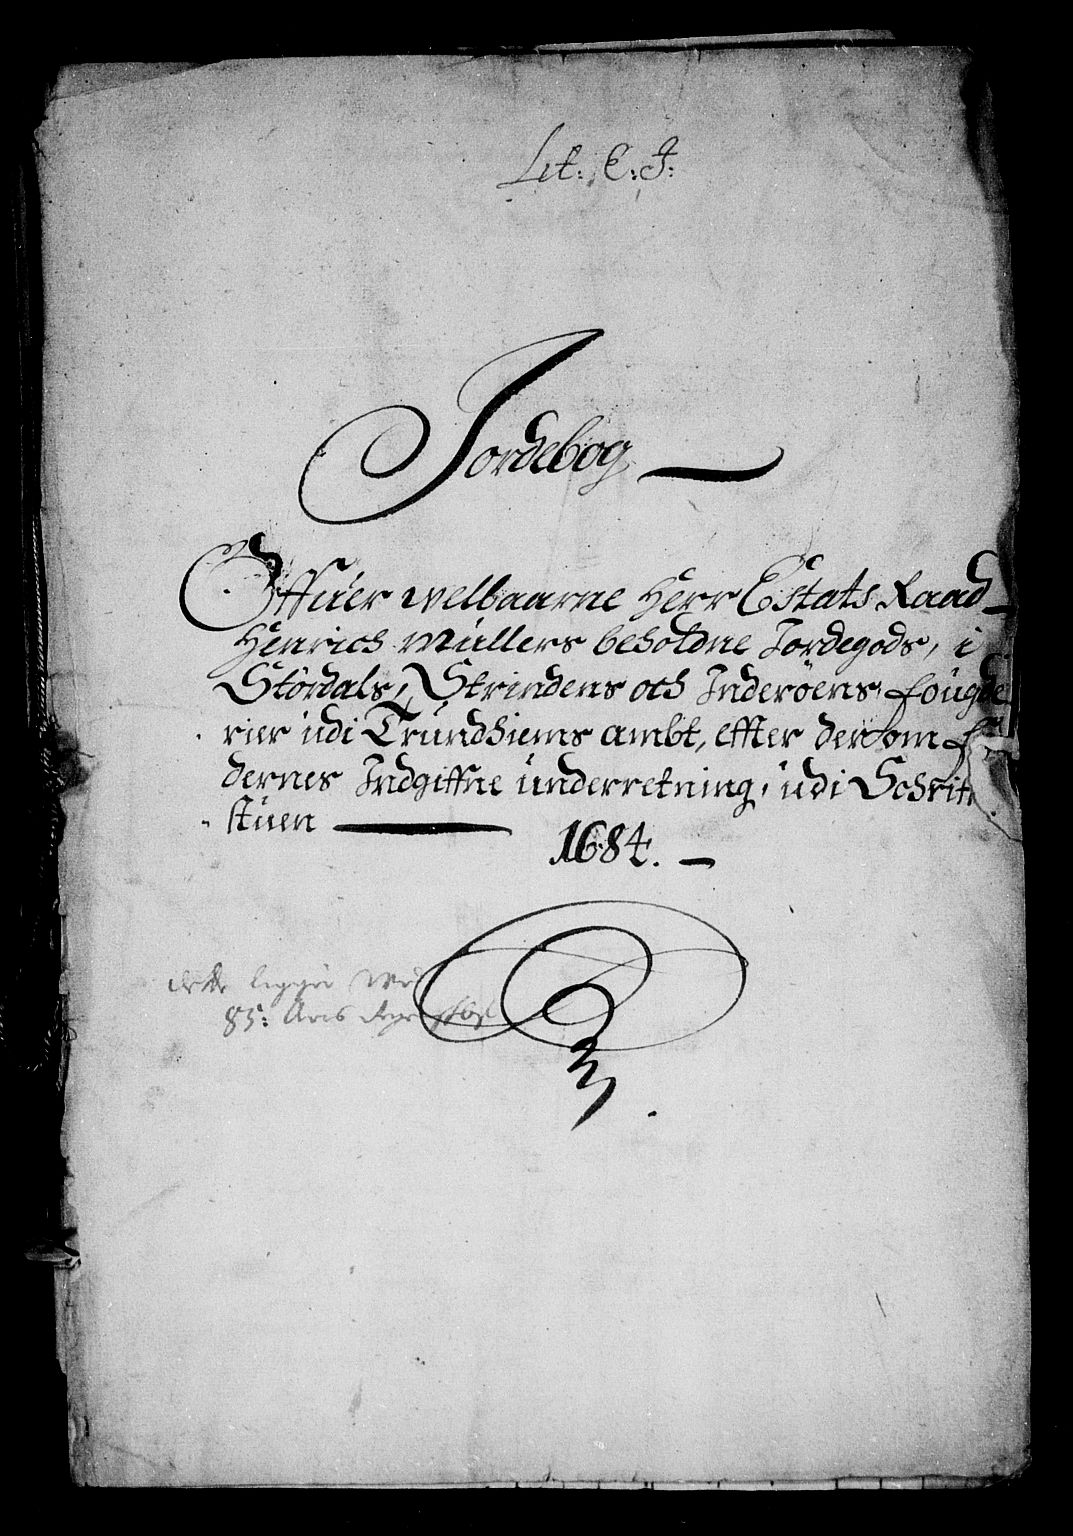 Lit: C: J:
Jordebog
Offuer welbaarne Herr Estats Raad
Henrich Müllers beholdne Jordegods, i
Stördals, Strindens och Inderöens fougde
rier udi Trundhiems ambt, effter derom
dernes Indgiffne underretning, udi Schrif
stuen
1684.
dette ligger wed
85: Aars